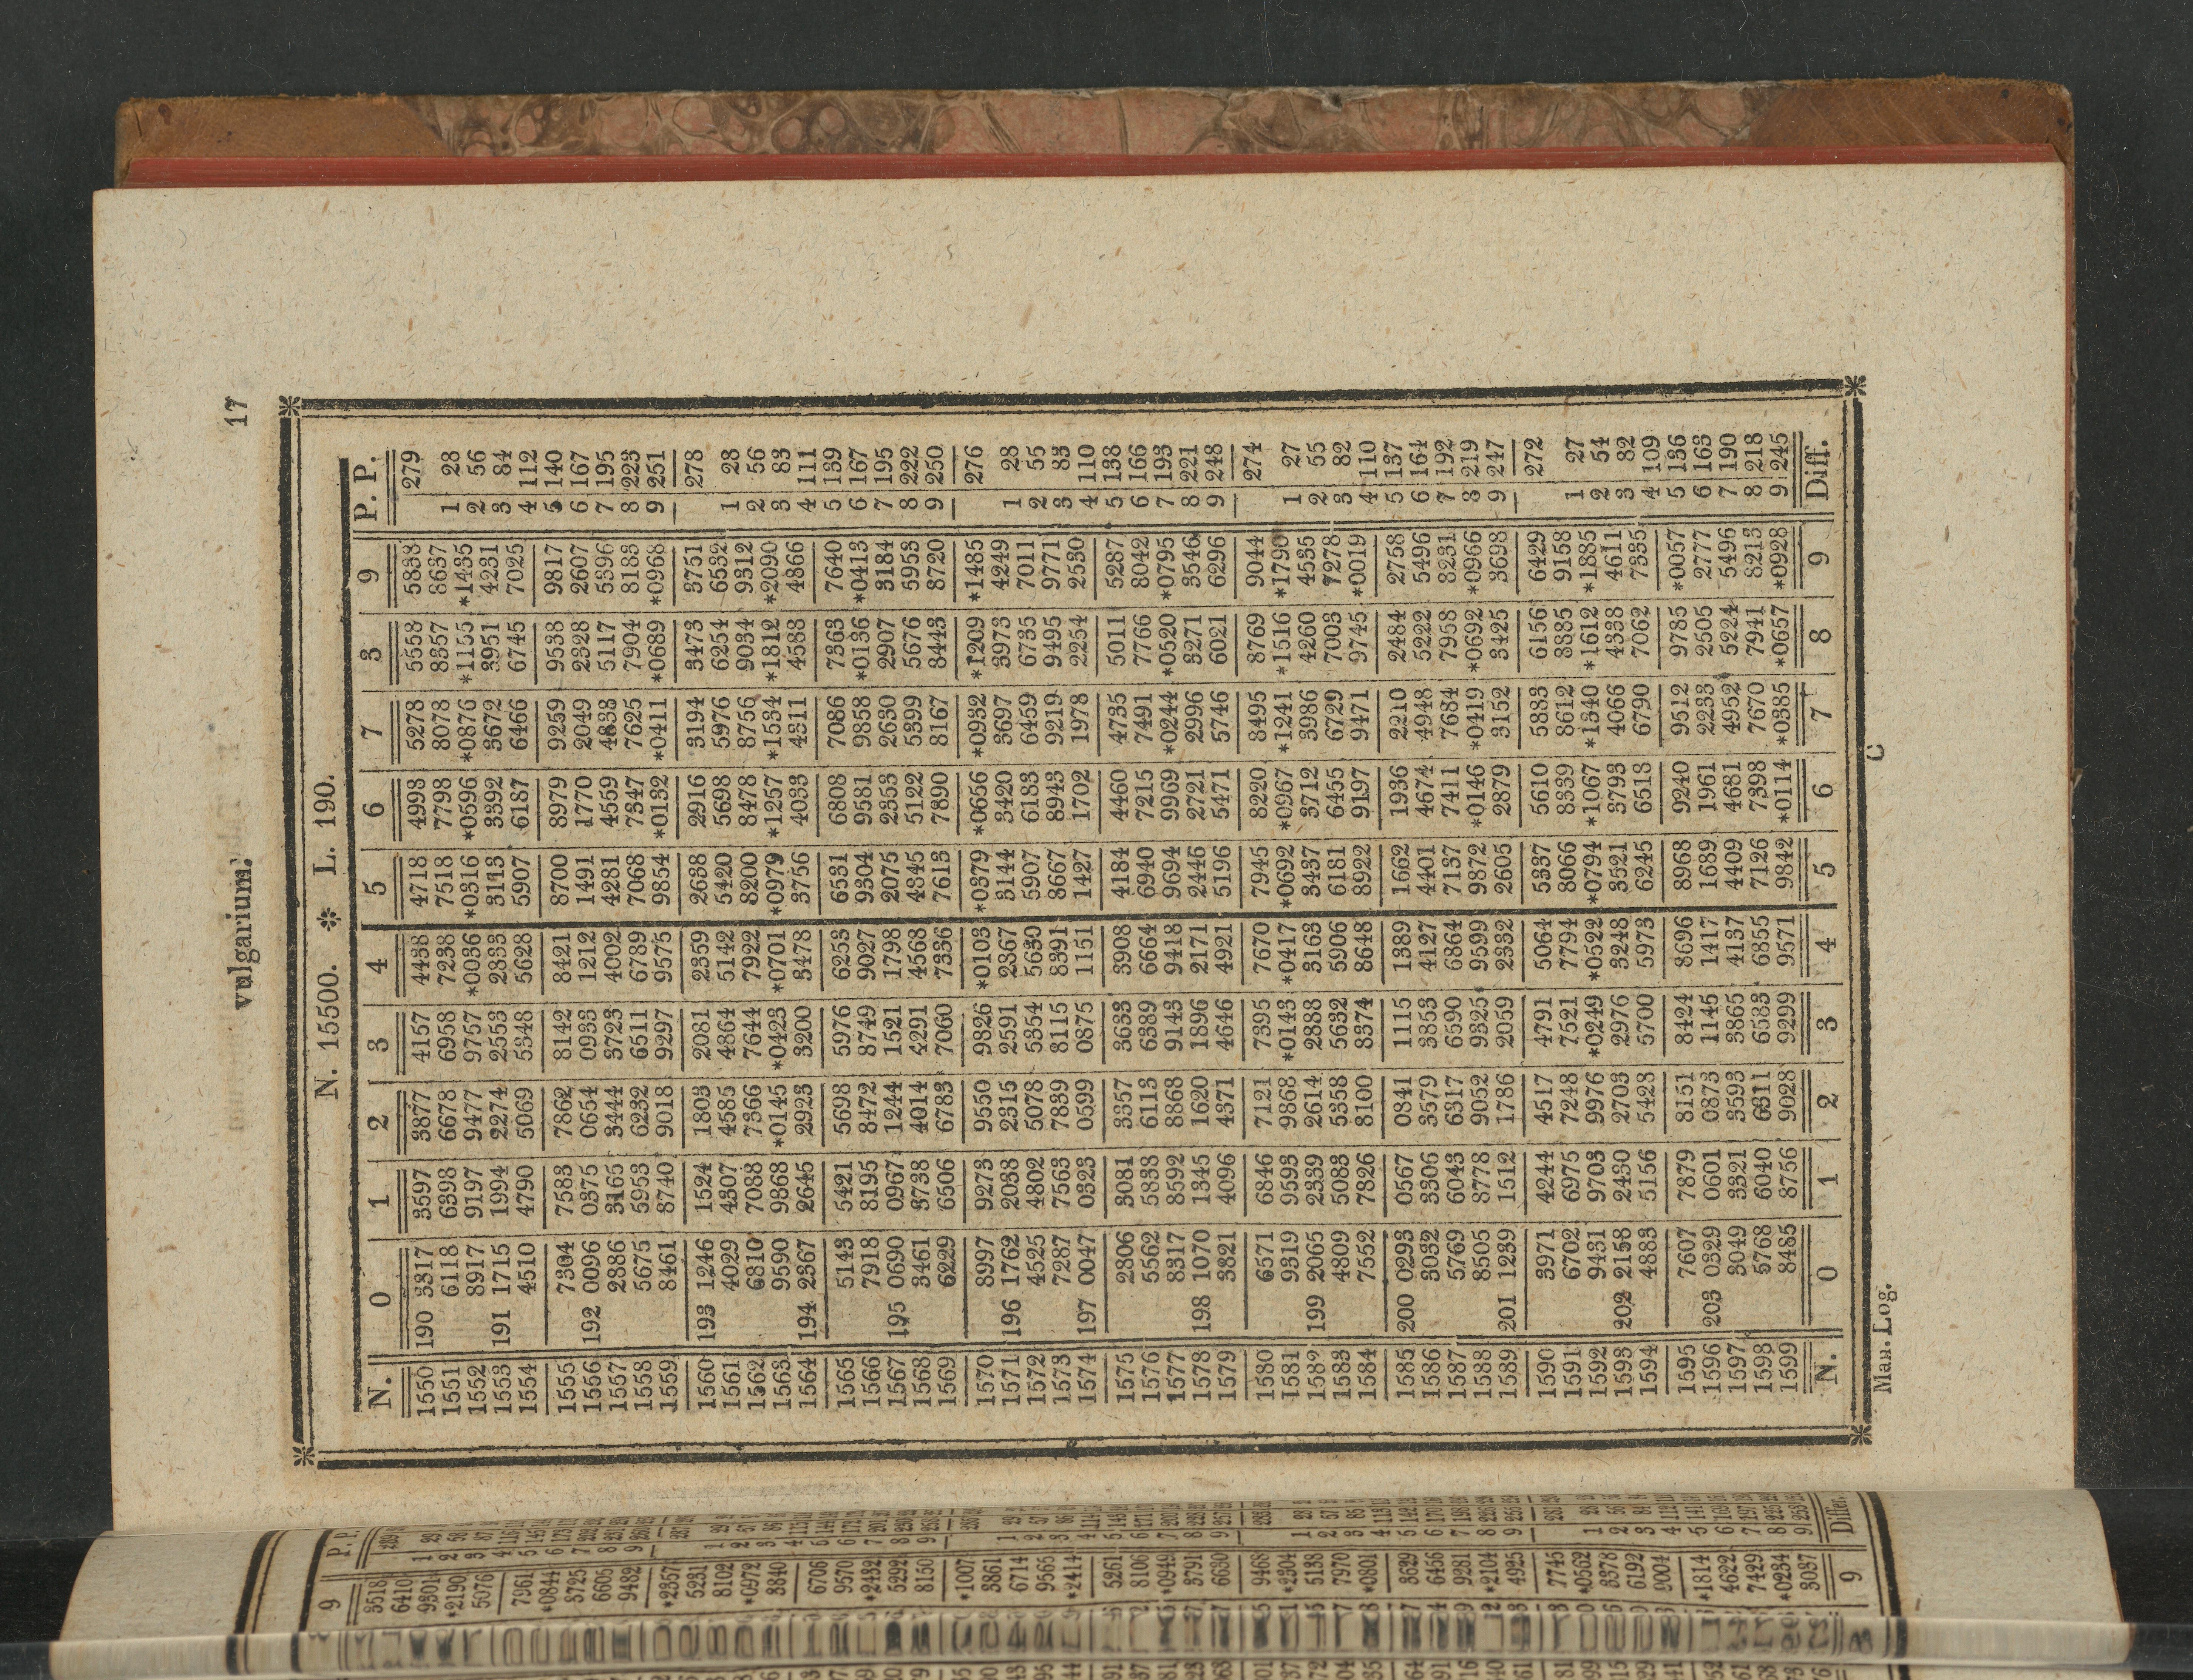 vulgarium. 17
N. 15500. * L. 190.
N. 0 1 2 3 4 5 6 7 8 9 P. P.
1550 190 3317 3597 3877 4157 4438 4718 4998 5278 5558 5838 279
1551 6118 6398 6678 6958 7238 7518 7798 8078 8357 8637 1 28
1552 8917 9197 9477 9757 *0036 *0316 *0596 *0876 *1155 *1435 2 56
1553 191 1715 1994 2274 2553 2833 3113 3392 3672 3951 4231 3 84
1554 4510 4790 5069 5348 5628 5907 6187 6466 6745 7025 4 112
1555 7304 7583 7862 8142 8421 8700 8979 9259 9538 9817 5 140
1556 192 0096 0375 0654 0933 1212 1491 1770 2049 2328 2607 6 167
1557 2886 3165 3444 3723 4002 4281 4559 4838 5117 5396 7 195
1558 5675 5953 6232 6511 6789 7068 7347 7625 7904 8183 8 223
1559 8461 8740 9018 9297 9575 9854 *0132 *0411 *0689 *0968 9 251
1560 193 1246 1524 1803 2081 2359 2638 2916 3194 3473 3751 278
1561 4029 4307 4585 4864 5142 5420 5698 5976 6254 6532 1 28
1562 6810 7088 7366 7644 7922 8200 8478 8756 9034 9312 2 56
1563 9590 9868 *0145 *0423 *0701 *0979 *1257 *1534 *1812 *2090 3 83
1564 194 2367 2645 2923 3200 3478 3756 4033 4311 4588 4866 4 111
1565 5143 5421 5698 5976 6253 6531 6808 7086 7363 7640 5 139
1566 7918 8195 8472 8749 9027 9304 9581 9858 *0136 *0413 6 167
1567 195 0690 0967 1244 1521 1798 2075 2353 2630 2907 3184 7 195
1568 3461 3738 4014 4291 4568 4845 5122 5399 5676 5953 8 222
1569 6229 6506 6783 7060 7336 7613 7890 8167 8443 8720 9 250
1570 8997 9273 9550 9826 *0103 *0379 *0656 *0932 *1209 *1485 276
1571 196 1762 2038 2315 2591 2867 3144 3420 3697 3973 4249 1 28
1572 4525 4802 5078 5354 5630 5907 6183 6459 6735 7011 2 55
1573 7287 7563 7839 8115 8391 8667 8943 9219 9495 9771 3 83
1574 197 0047 0323 0599 0875 1151 1427 1702 1978 2254 2530 4 110
1575 2806 3081 3357 3633 3908 4184 4460 4735 5011 5287 5 138
1576 5562 5838 6113 6389 6664 6940 7215 7491 7766 8042 6 166
1577 8317 8592 8868 9143 9418 9694 9969 *0244 *0520 *0795 7 193
1578 198 1070 1345 1620 1896 2171 2446 2721 2996 3271 3546 8 221
1579 3821 4096 4371 4646 4921 5196 5471 5746 6021 6296 9 248
1580 6571 6846 7121 7395 7670 7945 8220 8495 8769 9044 274
1581 9319 9593 9868 *0143 *0417 *0692 *0967 *1241 *1516 *1790 1 27
1582 199 2065 2339 2614 2888 3163 3437 3712 3986 4260 4535 2 55
1583 4809 5083 5358 5632 5906 6181 6455 6729 7003 7278 3 82
1584 7552 7826 8100 8374 8648 8922 9197 9471 9745 *0019 4 110
1585 200 0293 0567 0841 1115 1389 1662 1936 2210 2484 2758 5 137
1586 3032 3306 3579 3853 4127 4401 4674 4948 5222 5496 6 164
1587 5769 6043 6317 6590 6864 7137 7411 7684 7958 8231 7 192
1588 8505 8778 9052 9325 9599 9872 *0146 *0419 *0692 *0966 8 219
1589 201 1239 1512 1786 2059 2332 2605 2879 3152 3425 3698 9 247
1590 3971 4244 4517 4791 5064 5337 5610 5883 6156 6429 272
1591 6702 6975 7248 7521 7794 8066 8339 8612 8885 9158 1 27
1592 9431 9703 9976 *0249 *0522 *0794 *1067 *1340 *1612 *1885 2 54
1593 202 2158 2430 2703 2976 3248 3521 3793 4066 4338 4611 3 82
1594 4883 5156 5428 5700 5973 6245 6518 6790 7062 7335 4 109
1595 7607 7879 8151 8424 8696 8968 9240 9512 9785 *0057 5 136
1596 203 0329 0601 0873 1145 1417 1689 1961 2233 2505 2777 6 163
1597 3049 3321 3593 3865 4137 4409 4681 4952 5224 5496 7 190
1598 5768 6040 6311 6583 6855 7126 7398 7670 7941 8213 8 218
1599 8485 8756 9028 9299 9571 9842 *0114 *0385 *0657 *0928 9 245
N. 0 1 2 3 4 5 6 7 8 9 Diff.
Man. Log. C